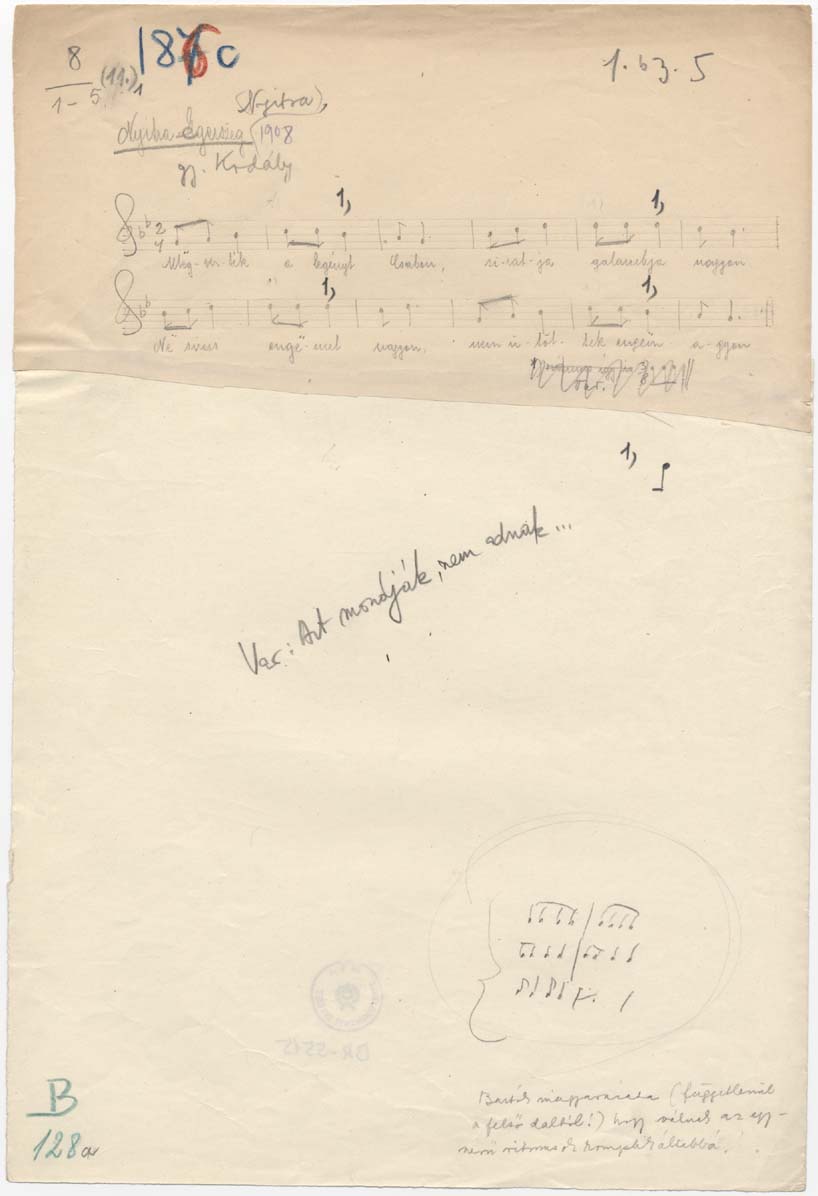 8
1-5 (11.)1
187c
6
1.b3.5
Nyitra),
Nyitra Egerszeg (1908
gy. Kodály
1, 1,
2
4
Meg-ver-ték a legényt Csabon, si-rat-ja galambja nagyon
1, 1,
Në sirass engëmet nagyon, nem ü-töt-tek engëm a-gyon
var.
1,
Var: Azt mondják, nem adnak...
B
128a
Bartók magyarázata (függetlenül
a felső daltól!) hogy válnak az egy-
szerű ritmusok komplikáltabbá.